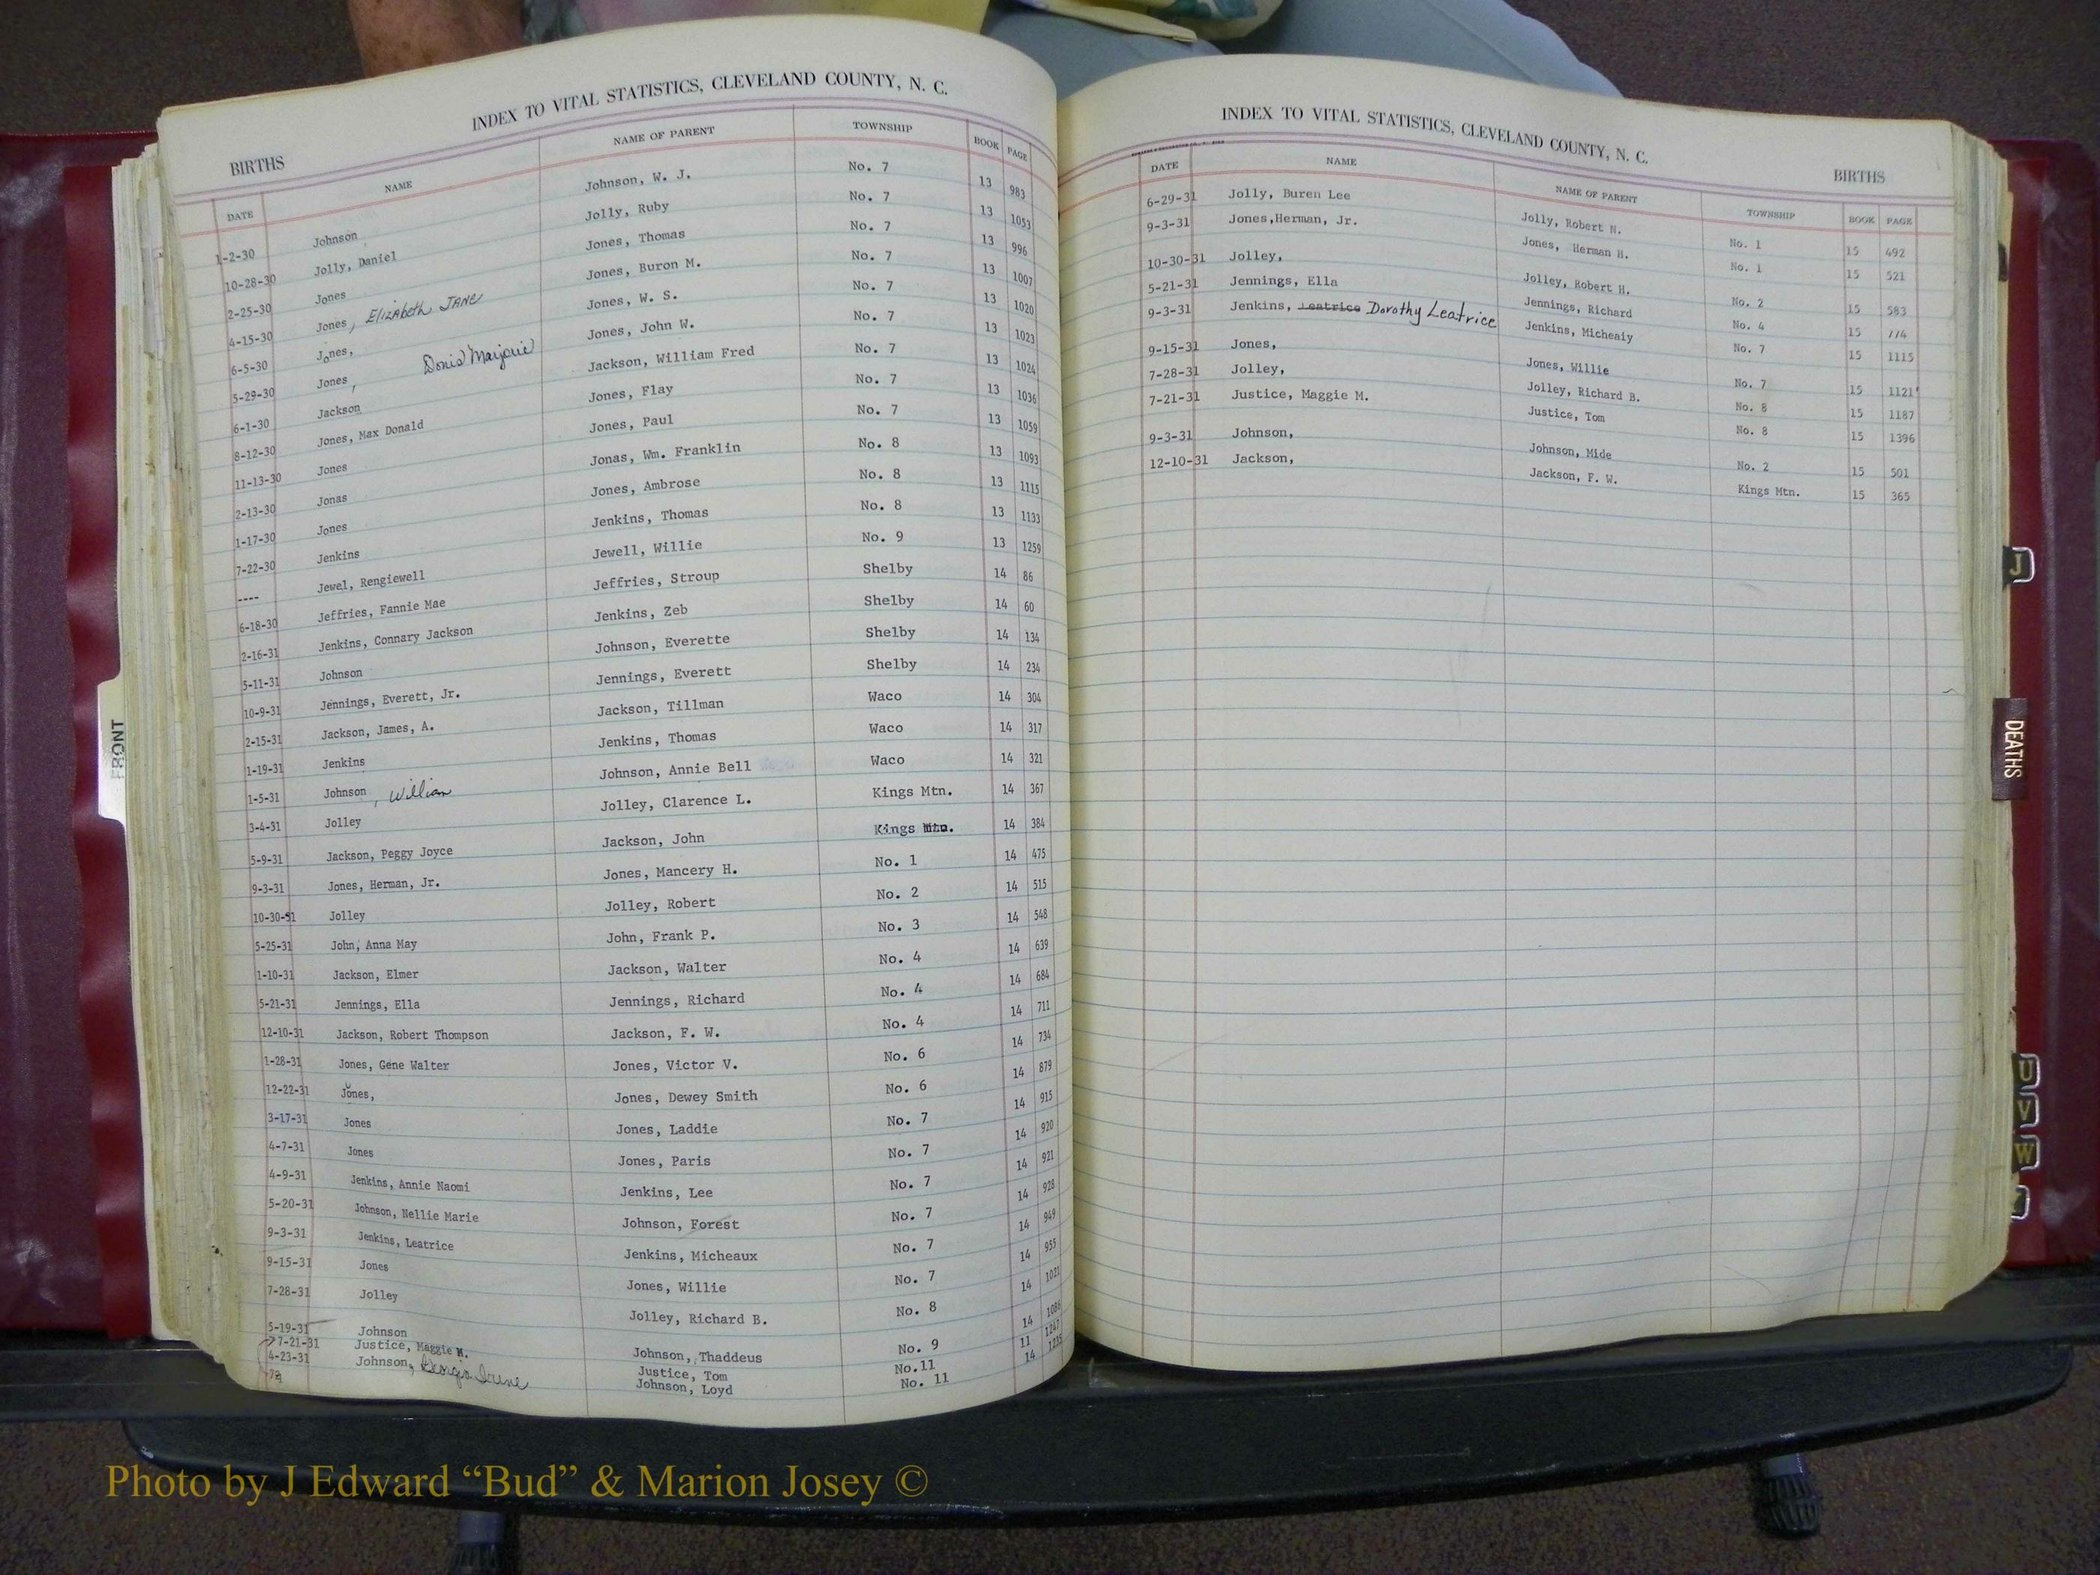 INDEX TO VITAL STATISTICS, CLEVELAND COUNTY, N. C.
BIRTHS
DATE NAME NAME OF PARENT TOWNSHIP BOOK PAGE
1-2-30 Johnson Johnson, W. J. No. 7 13 983
10-28-30 Jolly, Daniel Jolly, Ruby No. 7 13 1053
2-25-30 Jones Jones, Thomas No. 7 13 996
4-15-30 Jones, Elizabeth Jane Jones, Buron M. No. 7 13 1007
6-5-30 Jones, Jones, W. S. No. 7 13 1020
5-29-30 Jones, Doris Marjorie Jones, John W. No. 7 13 1023
6-1-30 Jackson Jackson, William Fred No. 7 13 1024
8-12-30 Jones, Max Donald Jones, Flay No. 7 13 1036
11-13-30 Jones Jones, Paul No. 7 13 1059
2-13-30 Jonas Jonas, Wm. Franklin No. 8 13 1093
1-17-30 Jones Jones, Ambrose No. 8 13 1115
7-22-30 Jenkins Jenkins, Thomas No. 8 13 1133
---- Jewel, Rengiewell Jewell, Willie No. 9 13 1259
6-18-30 Jeffries, Fannie Mae Jeffries, Stroup Shelby 14 86
2-16-31 Jenkins, Connary Jackson Jenkins, Zeb Shelby 14 60
5-11-31 Johnson Johnson, Everette Shelby 14 134
10-9-31 Jennings, Everett, Jr. Jennings, Everett Shelby 14 234
2-15-31 Jackson, James, A. Jackson, Tillman Waco 14 304
1-19-31 Jenkins Jenkins, Thomas Waco 14 317
1-5-31 Johnson, William Johnson, Annie Bell Waco 14 321
3-4-31 Jolley Jolley, Clarence L. Kings Mtn. 14 367
5-9-31 Jackson, Peggy Joyce Jackson, John Kings Mtn. 14 384
9-3-31 Jones, Herman, Jr. Jones, Mancery H. No. 1 14 475
10-30-31 Jolley Jolley, Robert No. 2 14 515
5-25-31 John, Anna May John, Frank P. No. 3 14 548
1-10-31 Jackson, Elmer Jackson, Walter No. 4 14 639
5-21-31 Jennings, Ella Jennings, Richard No. 4 14 684
12-10-31 Jackson, Robert Thompson Jackson, F. W. No. 4 14 711
1-28-31 Jones, Gene Walter Jones, Victor V. No. 6 14 734
12-22-31 Jones, Jones, Dewey Smith No. 6 14 879
3-17-31 Jones Jones, Laddie No. 7 14 915
4-7-31 Jones Jones, Paris No. 7 14 920
4-9-31 Jenkins, Annie Naomi Jenkins, Lee No. 7 14 921
5-20-31 Johnson, Nellie Marie Johnson, Forest No. 7 14 928
9-3-31 Jenkins, Leatrice Jenkins, Micheaux No. 7 14 949
9-15-31 Jones Jones, Willie No. 7 14 955
7-28-31 Jolley Jolley, Richard B. No. 8 14 1021
5-19-31 Johnson Johnson, Thaddeus No. 9 14 1086
7-21-31 Justice, Maggie M. Justice, Tom No.11 11 1247
4-23-31 Johnson, Georgia Irene Johnson, Loyd No. 11 14 1235
INDEX TO VITAL STATISTICS, CLEVELAND COUNTY, N. C.
BIRTHS
DATE NAME NAME OF PARENT TOWNSHIP BOOK PAGE
6-29-31 Jolly, Buren Lee Jolly, Robert N. No. 1 15 492
9-3-31 Jones,Herman, Jr. Jones, Herman H. No. 1 15 521
10-30-31 Jolley, Jolley, Robert H. No. 2 15 583
5-21-31 Jennings, Ella Jennings, Richard No. 4 15 774
9-3-31 Jenkins, Leatrice Dorothy Leatrice Jenkins, Micheaiy No. 7 15 1115
9-15-31 Jones, Jones, Willie No. 7 15 1121
7-28-31 Jolley, Jolley, Richard B. No. 8 15 1187
7-21-31 Justice, Maggie M. Justice, Tom No. 8 15 1396
9-3-31 Johnson, Johnson, Mide No. 2 15 501
12-10-31 Jackson, Jackson, F. W. Kings Mtn. 15 365
FRONT
J
DEATHS
U
V
W
Photo by J Edward “Bud” & Marion Josey ©